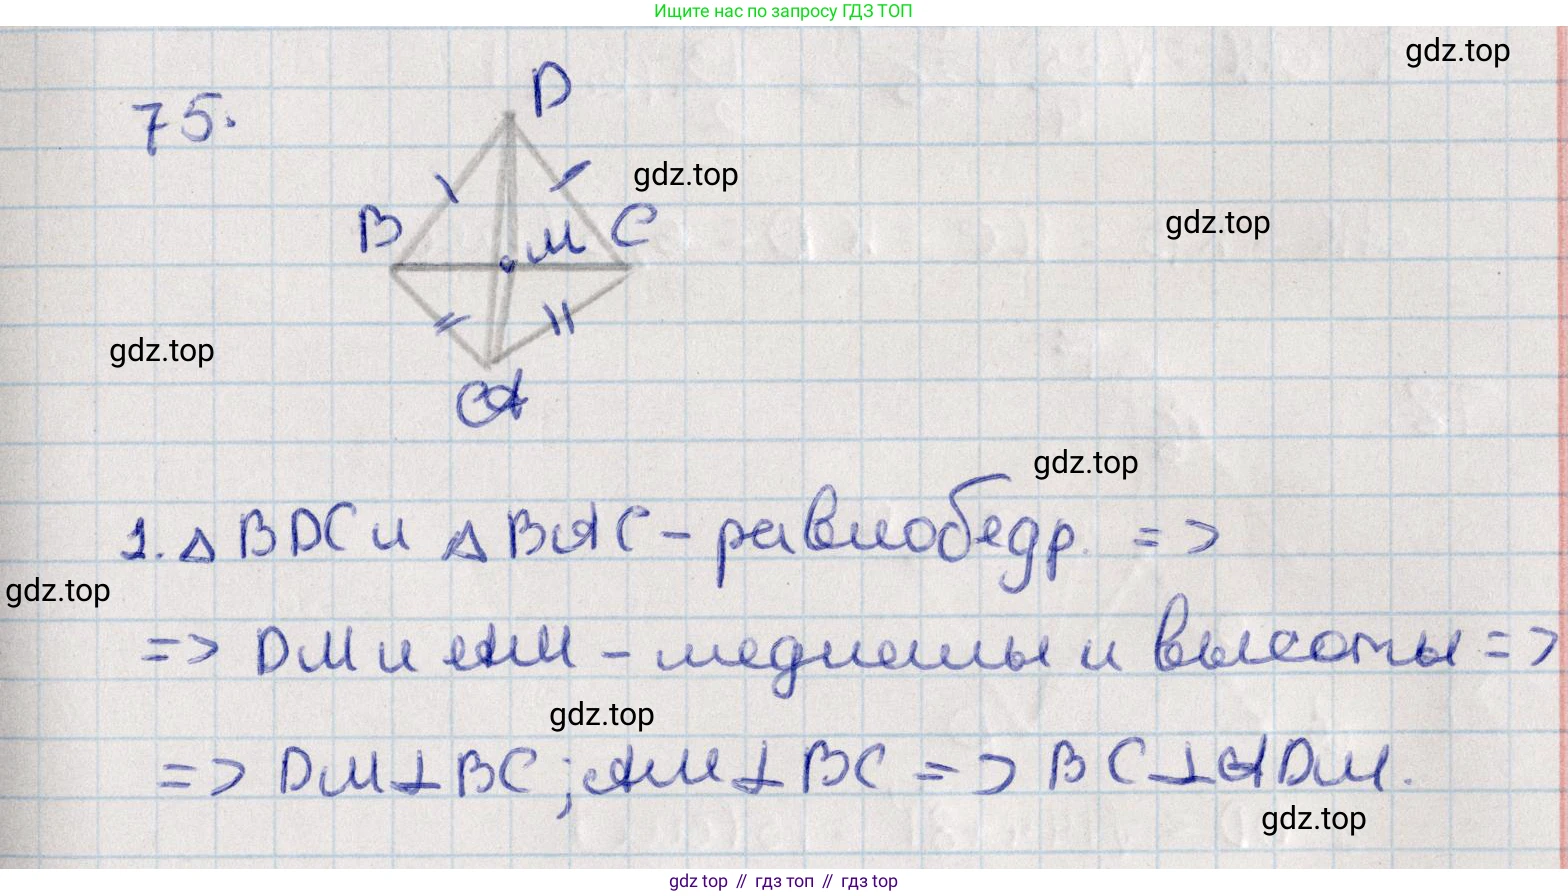 Ищите нас по запросу ГДЗ ТОП
gdz.top
75.
D
gdz.top
B
M
C
gdz.top
gdz.top
A
gdz.top
1. △ BDC и △ BAC – равнобедр. =>
gdz.top
=> DM и AM – медианы и высоты =>
gdz.top
=> DM⊥BC; AM⊥BC => BC⊥ADM.
gdz.top
gdz top // гдз топ // гдз top